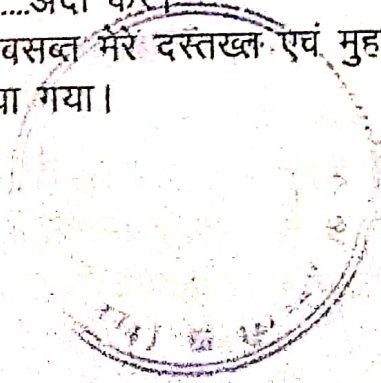 ....अदा करे।
वसब्त मेरे दस्तख्त एवं मुह
या गया।